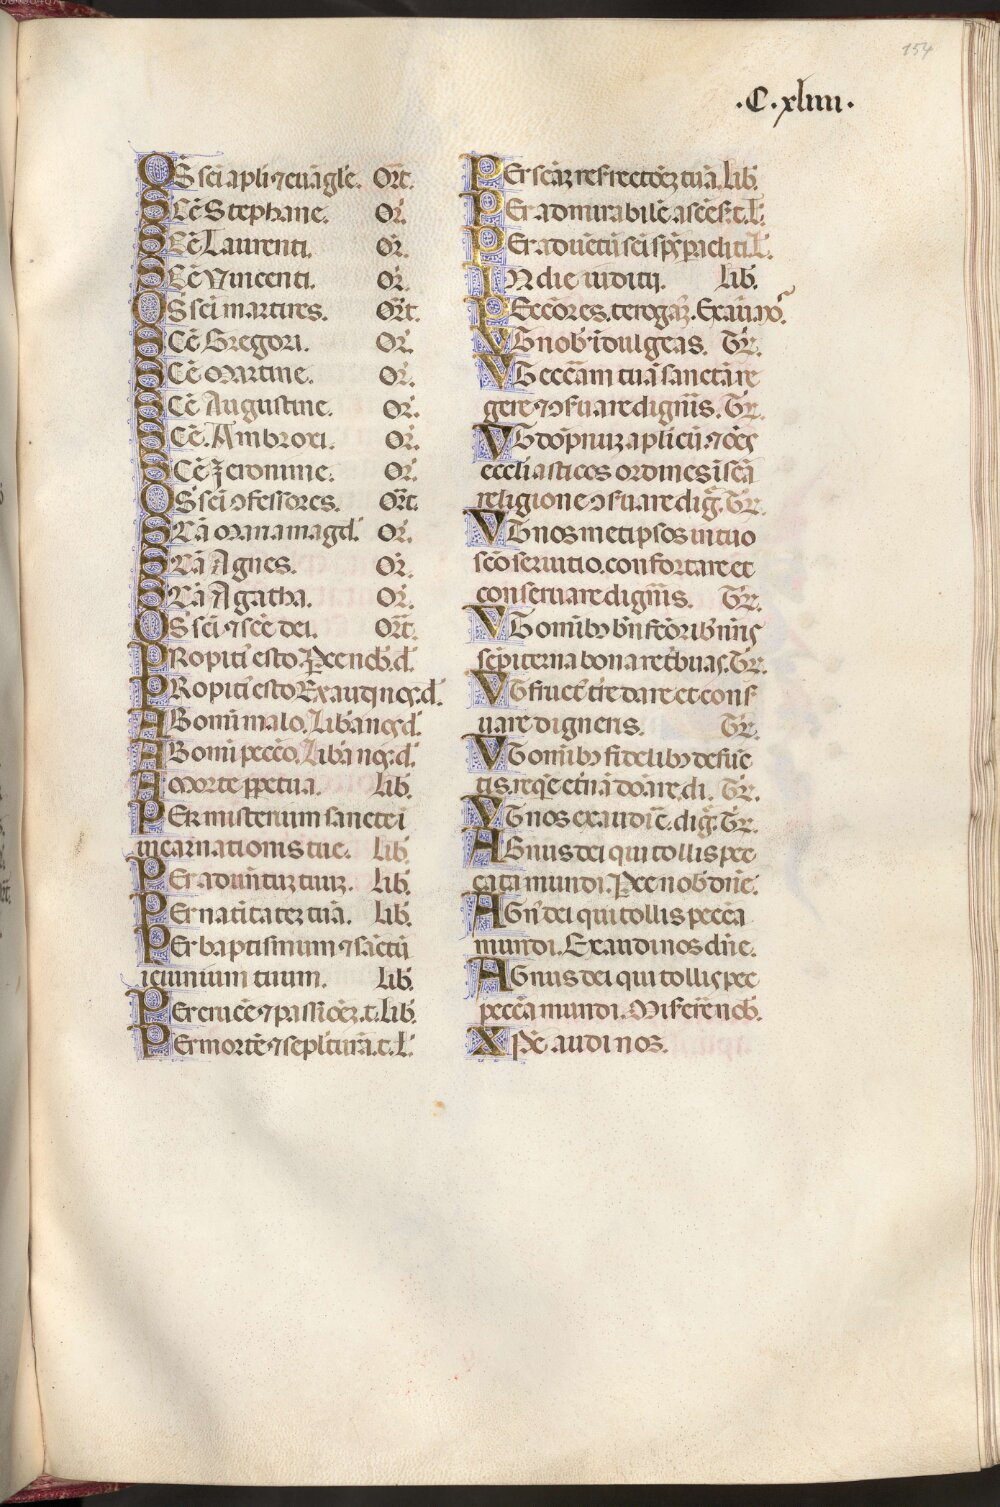 154
.C.xliiii.
OS sci apli ⁊ evāgle. Ort.
SCē Stephane. Or.
SCē Laurenti. Or.
SCē Vincenti. Or.
OS sci martires. Ort.
SCē Gregori. Or.
SCē Martine. Or.
SCē Augustine. Or.
SCē. Ambroxi. Or.
SCē Jeronime. Or.
OS sci ꝯfessores. Ort.
SCā Maria magd. Or.
SCā Agnes. Or.
SCā Agatha. Or.
OS sci ⁊ scē dei. Ort.
PRopiti esto. Pce nob. d.
PRopiti esto Exaudi nos. d.
AB omi malo. Liba nos. d.
AB omi peccō. Liba nos. d.
A Morte ppetua. Lib.
PEr misterium sancte i
incarnationis tue. Lib.
PEr adventuz tuuz. Lib.
PEr natiuitatez tuā. Lib.
PEr baptismum ⁊ sāctū
ieiunium tuum. Lib.
PEr crucē ⁊ passioēz. t. Lib.
PEr mortē ⁊ sepulturā. t. L.
PEr scāz resrectoēz tuā. Lib.
PEr admirabilē ascēs. t. L.
PEr adventū sci sps pacliti. L.
IN die iuditij. Lib.
PEccōres. te rogaz. Ex aū. nos.
VT nob idulgeas. Tr.
VT eccām tuā sanctā re
gere ⁊ ꝯseruare digniis. Tr.
VT dopnuz aplicū ⁊ oēs
eccliasticos ordines i scā
religione ꝯseruare dig. Tr.
VT nosmetipsos in tuo
scō seruitio. confortare et
conseruare digniis. Tr.
VT omībꝰ bnfctōribꝰ nris
sēpiterna bona retbuas. Tr.
VT fructꝰ tre dare et cons
uare digneris. Tr.
VT omībꝰ fidelibꝰ defūc
tis. reqē etnā doare. di. Tr.
VT nos exaudiē. dig. Tr.
AGnus dei qui tollis pec
cata mundi. Pce nob dne.
AGn dei qui tollis peccā
mundi. Exaudi nos dne.
AGnus dei qui tollis pec
peccā mundi. Miserē nob.
XPe audi nos.